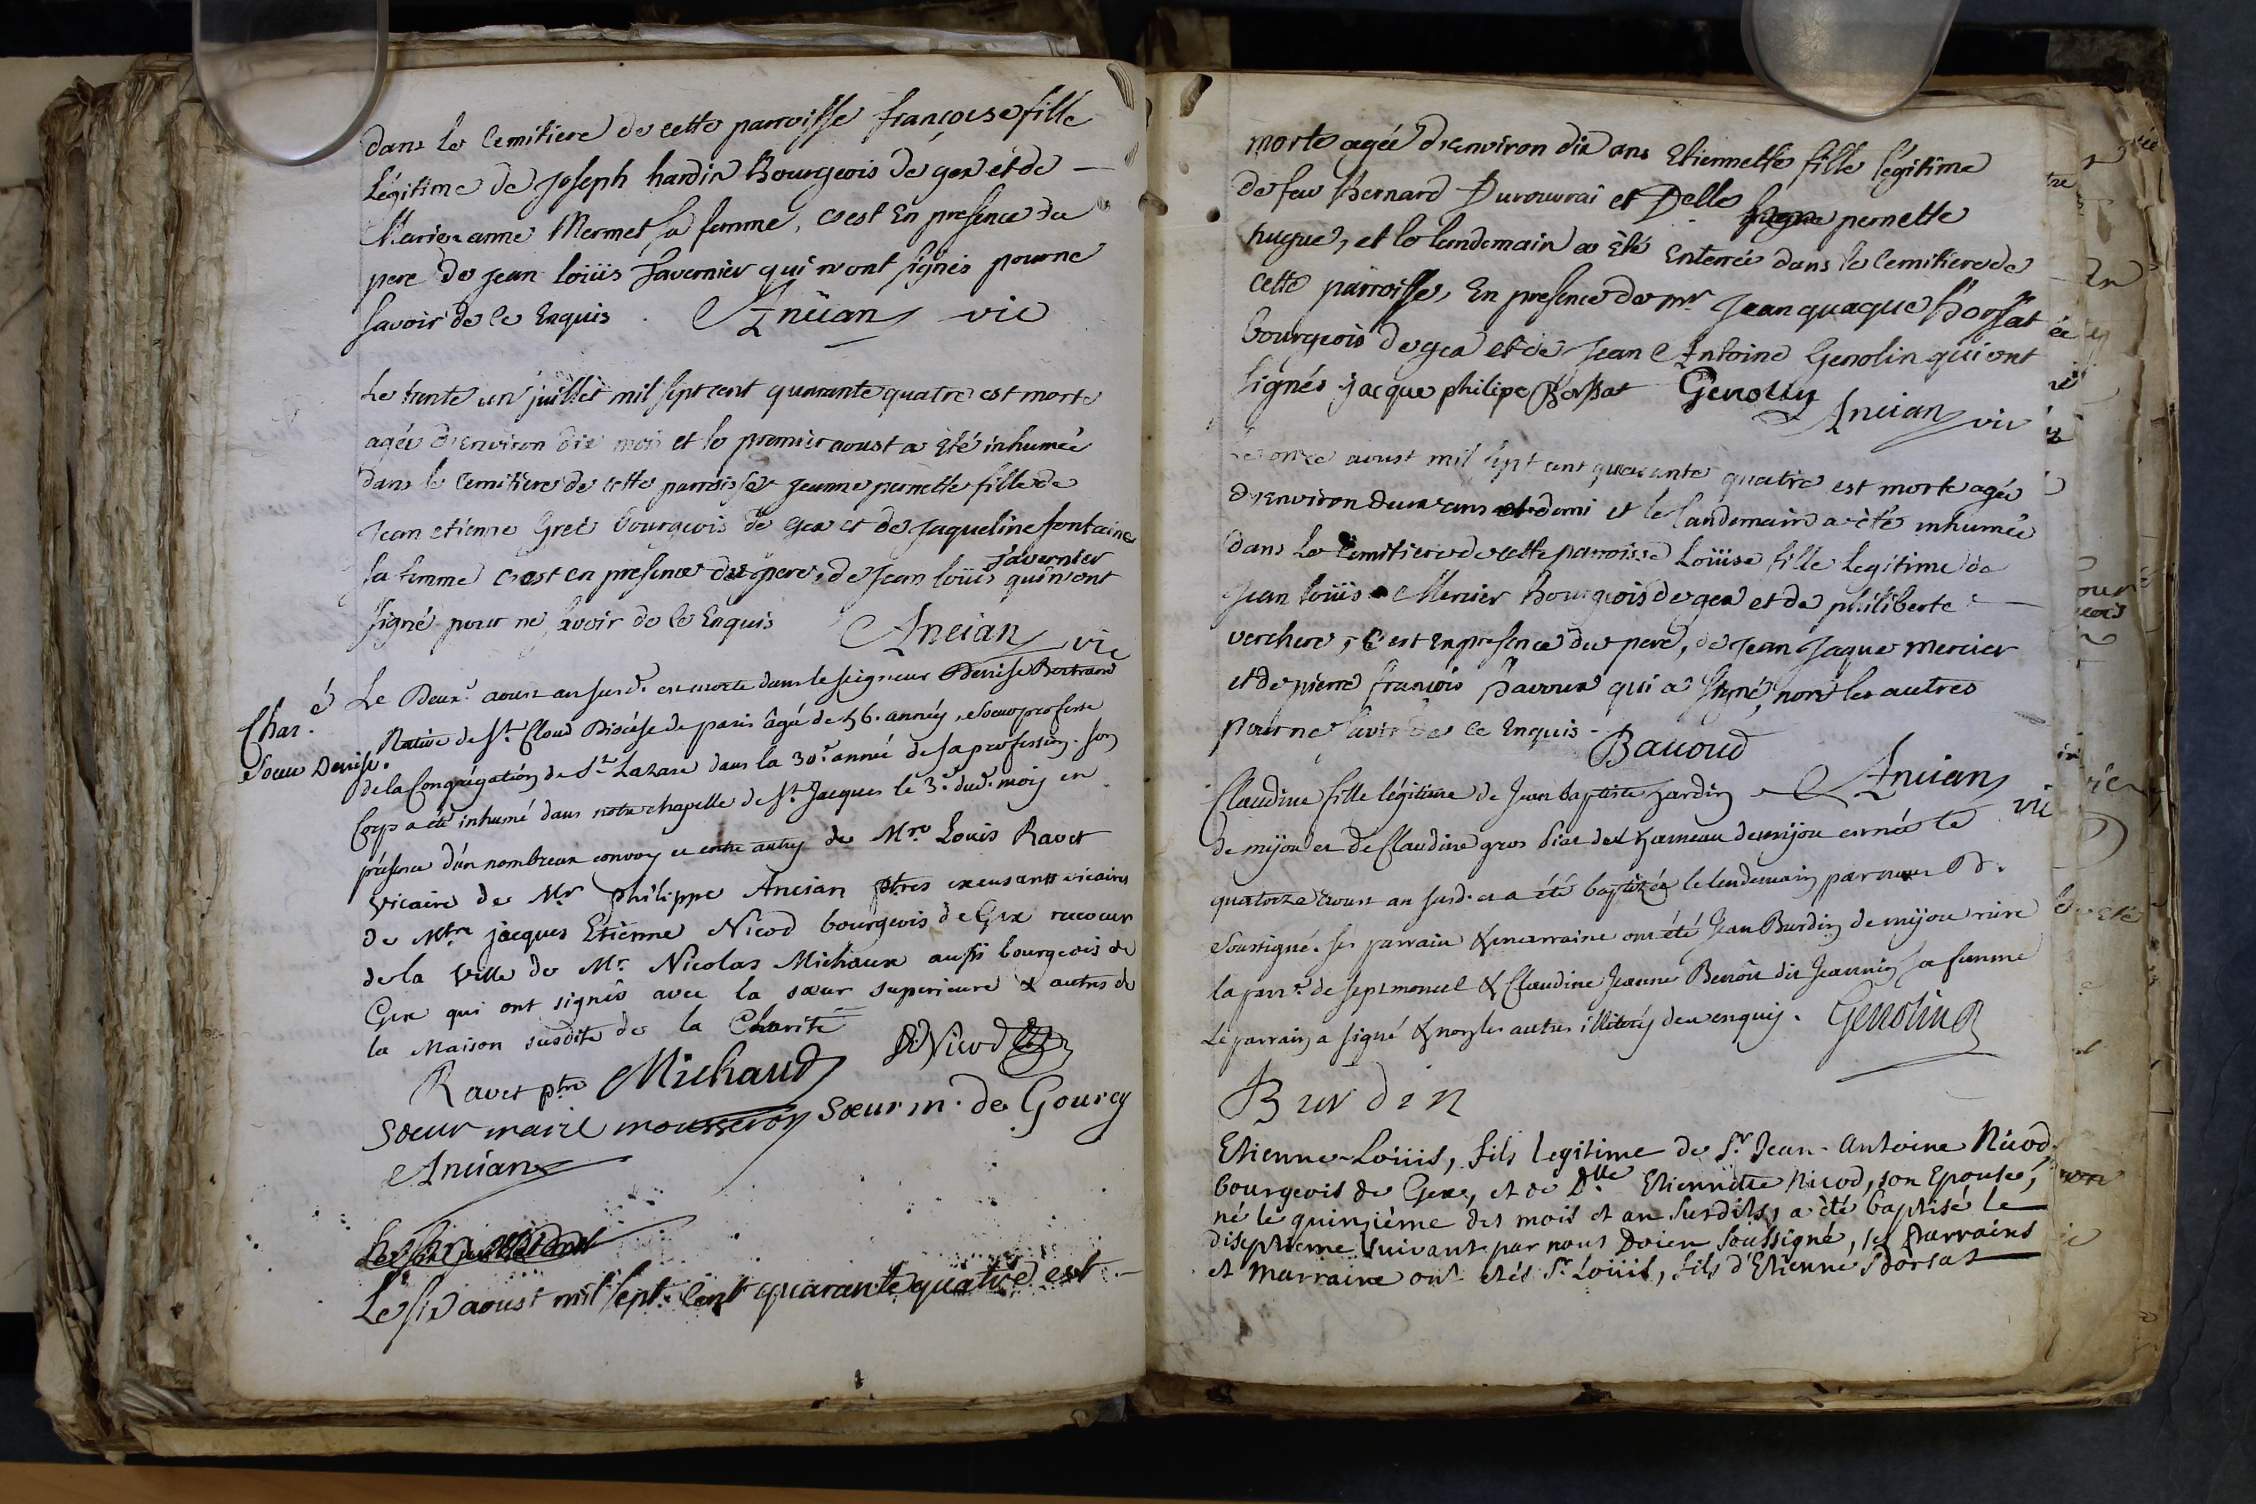 dans le Cemitiere de cette parroisse françoise fille
Légitime de Joseph hardin Bourgeois de gex et de
Marie anne Mermet sa femme, c'est En presence du
pere de jean loüis Tavernier qui n'ont signés pour ne
savoir de ce Enquis. Ancian vic
Le trente un juillet mil sept cent quarante quatre est morte
agée d'environ dix mois et le premier aoust a été inhumée
dans le Cemitiere de cette parroisse jeanne pernette fille de
Jean etienne Gret bourgeois de gex et de jaqueline fontaine
sa femme c'est en presence du pere, de Jean loüis Tavernier qui n'ont
signé pour ne savoir de ce Enquis
Ancian vic
Char.é
Soeur Denise.
Le Deux.e aoust an susd.t est morte dans le seigneur Denise Bertrand
Native de St. Cloud Diocése de paris âgé de 56. année, Soeur professe
de la Congrégation de St. Lazare dans la 30.e anneé de sa profession. son
Corps a été inhumé dans notre chapelle de St. Jacques le 3.e dud.t mois en
présence d'un nombreux convoy et entre autres de Mre Louis Ravet
Vicaire de Mr philippe Ancian ptres vicaires
de Mtre jacques Etienne Nicod bourgeois de Gex receveur
de la Ville de Mr. Nicolas Michaux aussi bourgeois de
Gex qui ont signés avec la sœur superieure & autres de
la Maison susdite de la Charité
Ravet ptre Michaud Nicod
Soeur marie mousseron Sœur m. de Gourcy
Ancian
Le six aoust mil sept cent quarante quatre est
morte agée d'environ dix ans Etiennette fille légitime
de feu Bernard Durouvrai et Delle pernette
hugue, et le lendemain a été Enterrée dans le Cemitiere de
Cette parroisse, En presence de mr Jean quaque Borssat
bourgeois de gex et de Jean Antoine Genolin qui ont
signés jacque philipe Borsat Genolin
Ancian vic
Le onze aoust mil sept cent quarante quatre est morte agée
d'environ deux ans et demi et le landemain a été inhumée
dans le Cemitiere de cette parroisse Loüise fille legitime de
Jean loüis Mercier Bourgeois de gex et de philiberte
verchere, C'est En presence du pere, de Jean Jaque mercier
et de pierre françois Pavoux qui a signé, non les autres
pour ne savoir de ce Enquis.
Bavoud
Ancian vic
Claudine fille légitime de Jean baptiste hardin
de mijoux et de Claudine gros Piat del hameau de mijou est née le
quatorze aoust an susd. et a été baptizée le lendemain par nous
Soussigné. ses parrain & marraine ont été Jean Burdin de mijou rive
la parr.e de septmoncel & Claudine Jeanne Benôit dit Jeannin sa femme
Le parrain a signé & non les autres illiterés de ce enquis. Genolin
Burdin
Etienne-Loüis, fils legitime de Sr Jean-Antoine Nicod
bourgeois de Gex, et de Dlle Etiennette Nicod, son Epouse,
né le quinzième des mois et an susdits, a été baptisé le
diseptieme suivant par nous Doien soussigné, ses parrains
et marraine ont etés Sr Loüis, fils d'Etienne Borsat